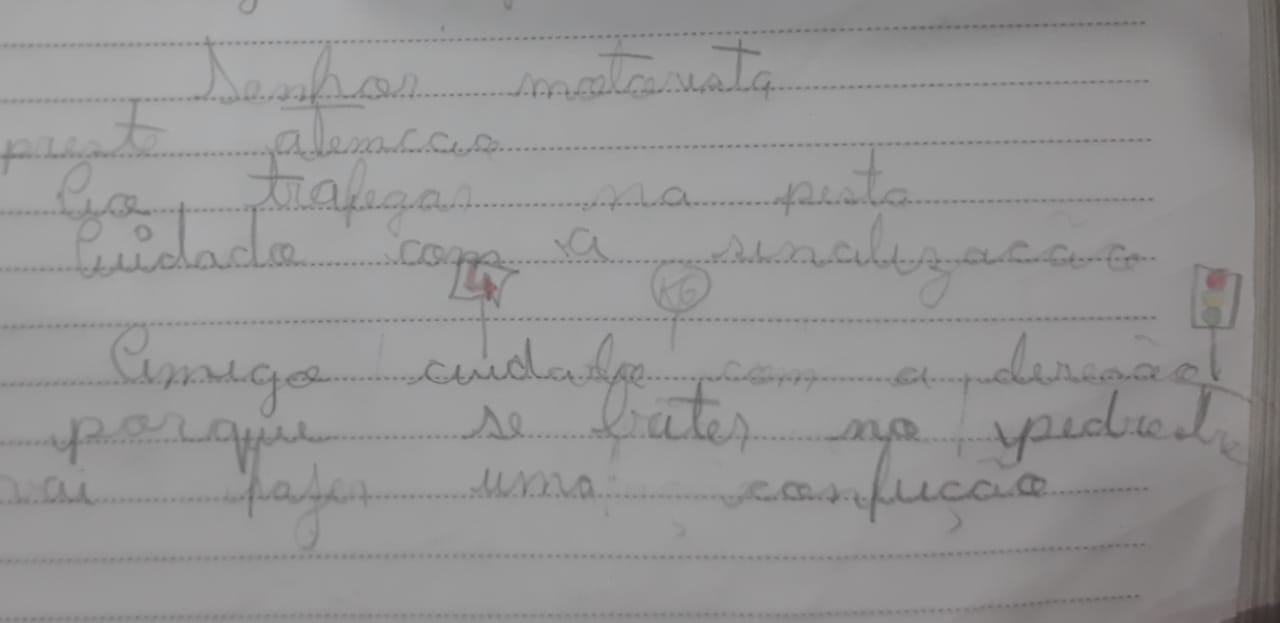 Senhor motorista
preste atemcao
Ao trafegar na pista
Cuidado com a sinalizacão
KG
Amigo cuidado com a derecão
porque se bater no pedestre
vai fazer uma confução